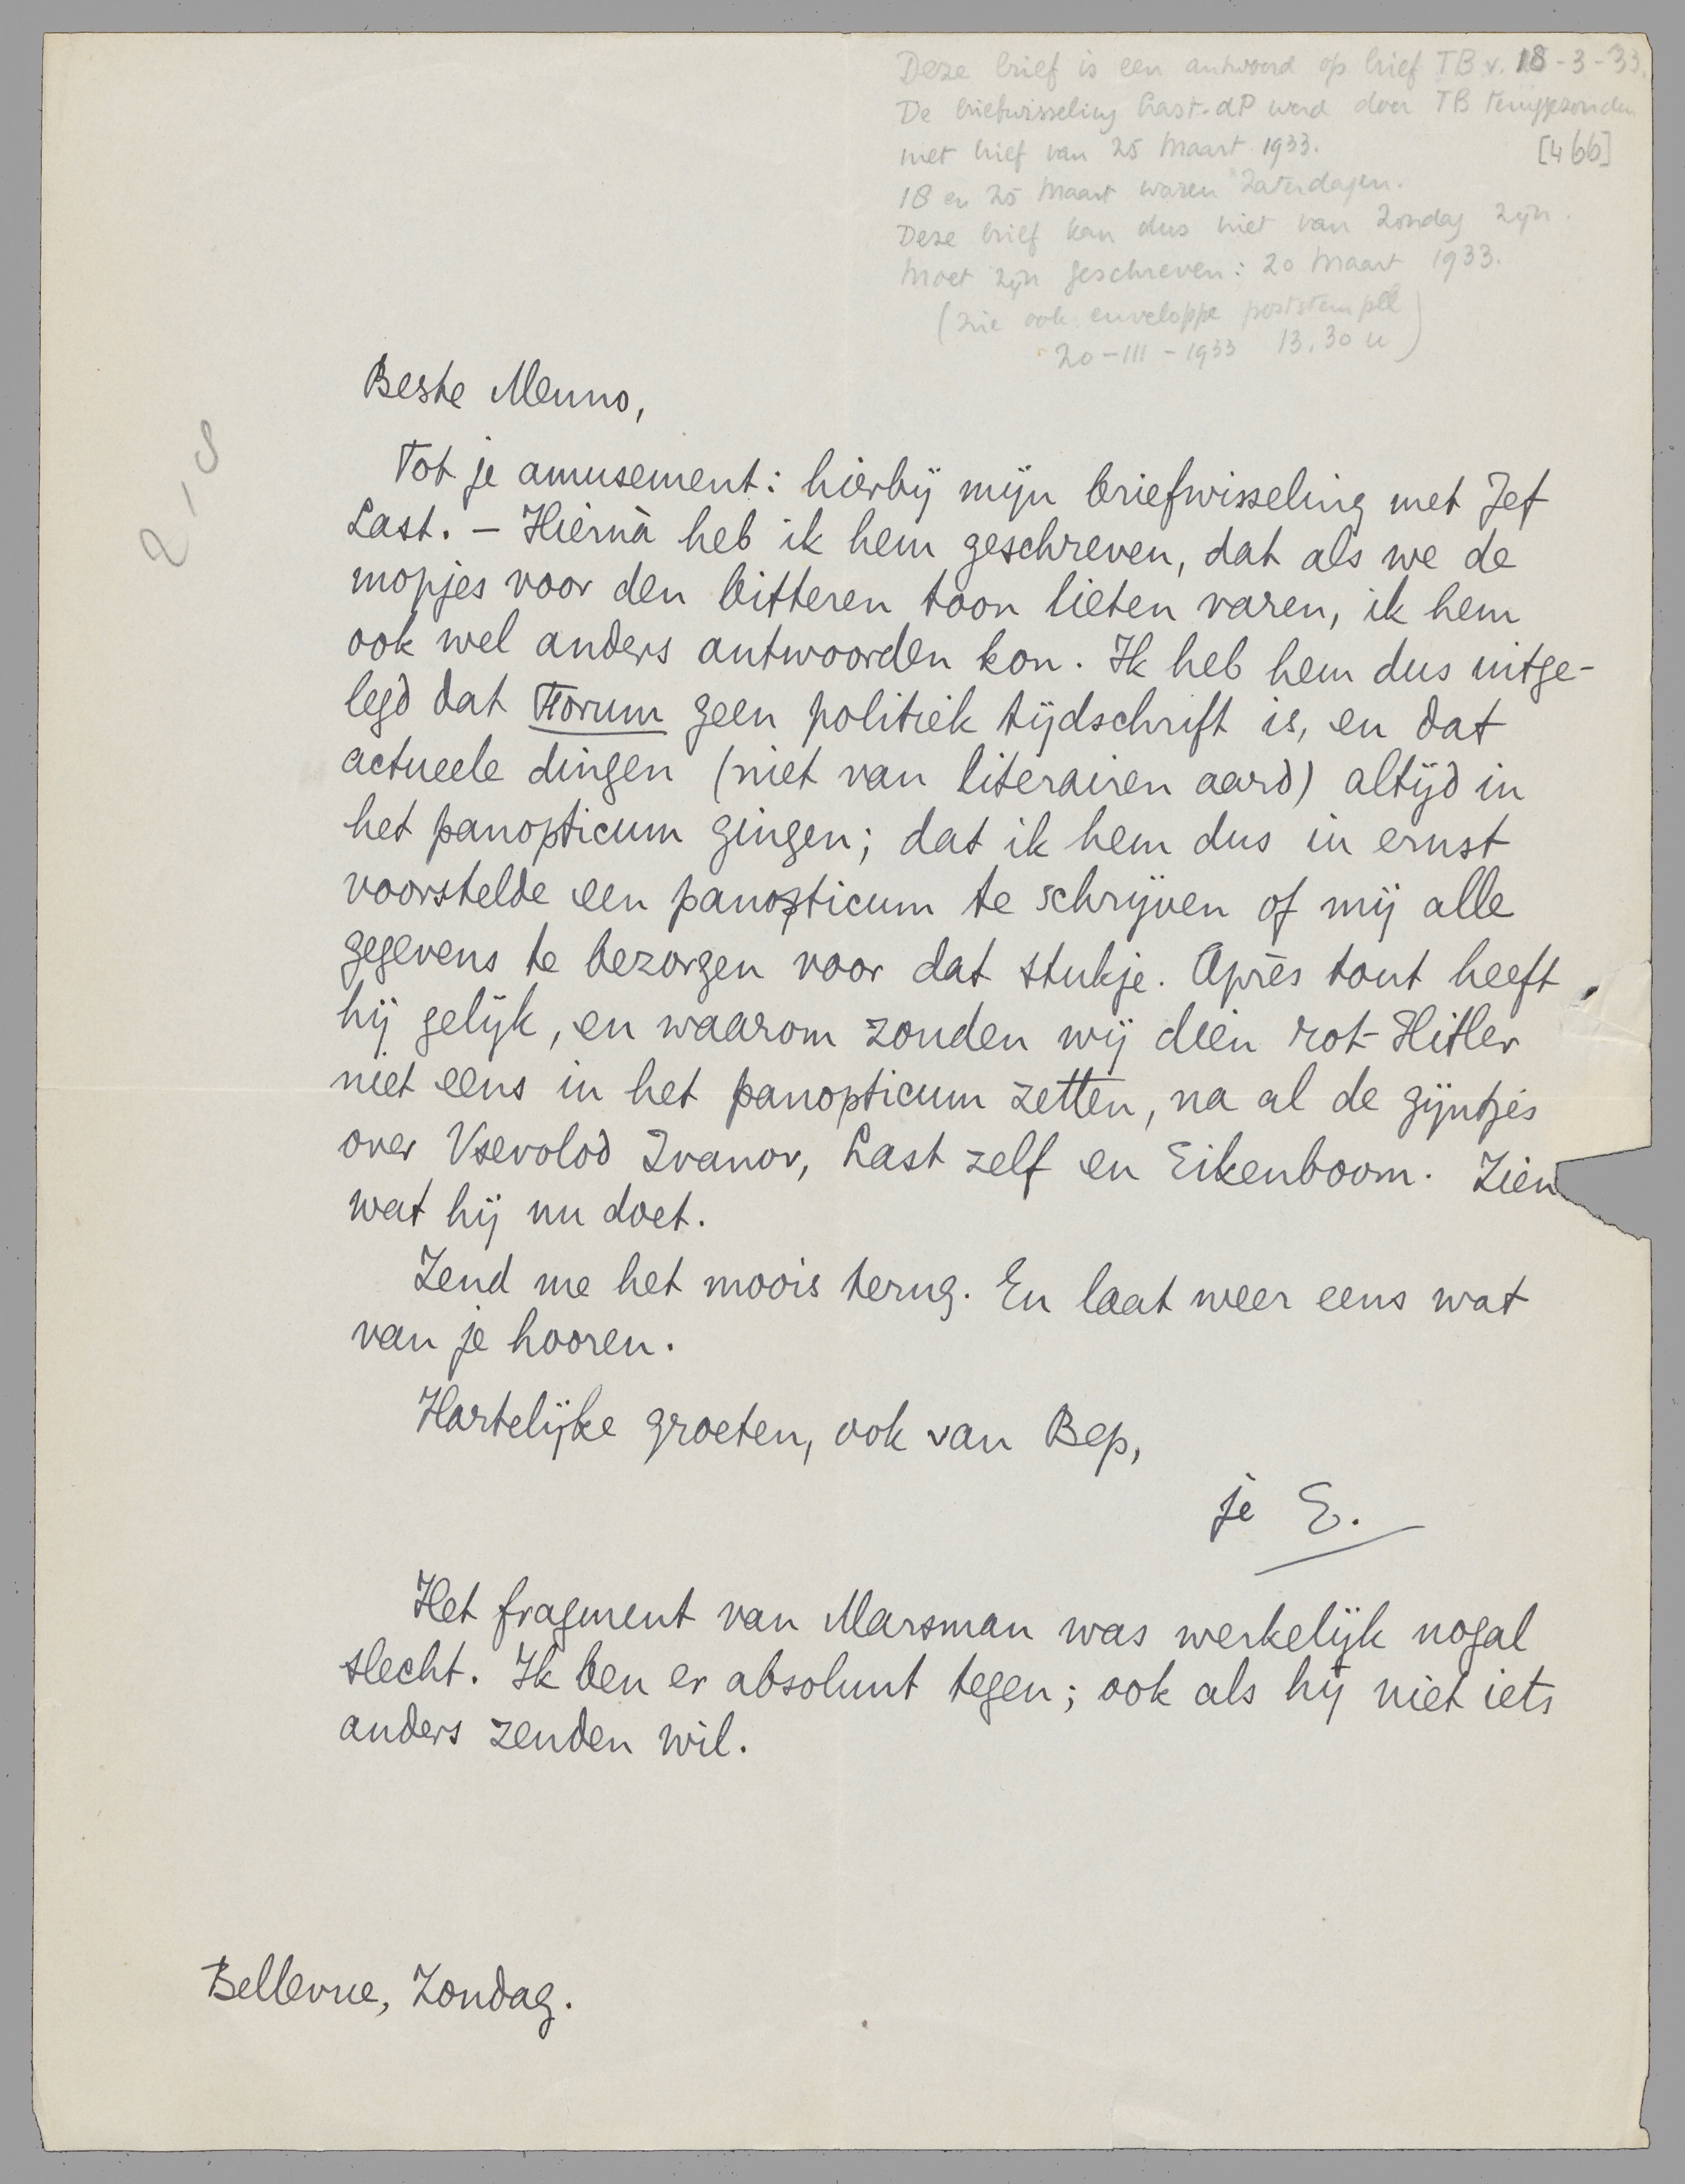 Deze brief is een antwoord op brief TB v. 18-3-33.
De briefwisseling Last-dP werd door TB teruggezonden
met brief van 25 Maart 1933.
[466]
18 en 25 Maart waren Zaterdagen.
Deze brief kan dus niet van Zondag zijn.
Moet zijn geschreven: 20 Maart 1933.
(zie ook enveloppe poststempel
20-III-1933 13.30 u)
2-8
Beste Menno,
Tot je amusement: hierbij mijn briefwisseling met Jef
Last. – Hiernà heb ik hem geschreven, dat als we de
mopjes voor den bitteren toon lieten varen, ik hem
ook wel anders antwoorden kon. Ik heb hem dus uitge-
legd dat Forum geen politiek tijdschrift is, en dat
actueele dingen (niet van literairen aard) altijd in
het panopticum gingen; dat ik hem dus in ernst
voorstelde een panopticum te schrijven of mij alle
gegevens te bezorgen voor dat stukje. Après tout heeft
hij gelijk, en waarom zouden wij dien rot-Hitler
niet eens in het panopticum zetten, na al de gijntjes
over Vsevolod Ivanov, Last zelf en Eikenboom. Zien
wat hij nu doet.
Zend me het moois terug. En laat weer eens wat
van je hooren.
Hartelijke groeten, ook van Bep,
je E.
Het fragment van Marsman was werkelijk nogal
slecht. Ik ben er absoluut tegen; ook als hij niet iets
anders zenden wil.
Bellevue, Zondag.